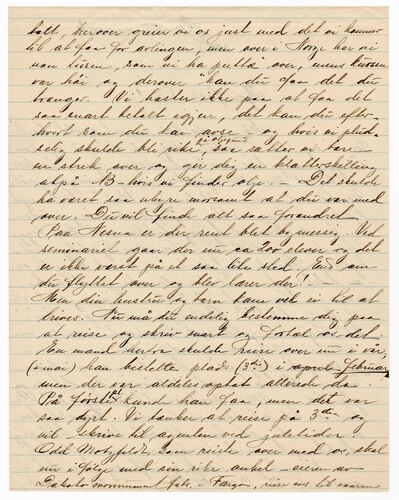 halt, herover greier vi os just med det vi kommer
til at faa for avlingen, men over i Norge har vi
noen tusen som vi ha puttæ over, mens kursen
var håi og derover kan du faa det du
trænger. Vi haster ikke paa at faa det
saa snart betalt igjen, det kan du efter-
hvert som du kan og hvis vi plud-
selig skulde bli rike, saa sætter vi bare
paa olegrund
en strek over og gir dig en klatteskilling
atpå NB - hvis vi finder olje. - Det skulde
ha været saa uhyre morsomt at du var med
over. Du vil finde alt saa forandret.
Paa Nesna er der rent blet bymessig. Ved
seminariet gaar der nu ca 200 elever og det
er ikke værst på et saa lite sted. End om
du flyttet over og blev lærer der!
Men din hustru og barn kom vel ei til at
trives. Nu må du endelig bestemme dig paa
at reise og skriv snart og fortæl os det.
En mand skulde reise over nu i vår,
(i mai) han bestilte plads (3die) i februar
men der var aldeles optat allerede da
På først pl. kunde han faa, men det var
saa dyrt. Vi tænker at reise på 3die og
vil skrive til agenten ved juletider.
Odd som reiste over med os, skal
nu i følge med sin rike onkel - eieren av
Dakota monnument fabr. i Fargo, reise over til vaaren